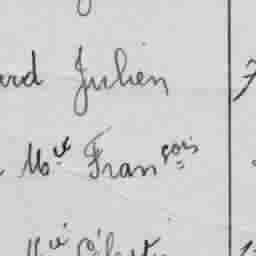 ard Julien
M.ie Fran çois
M ié Célesti